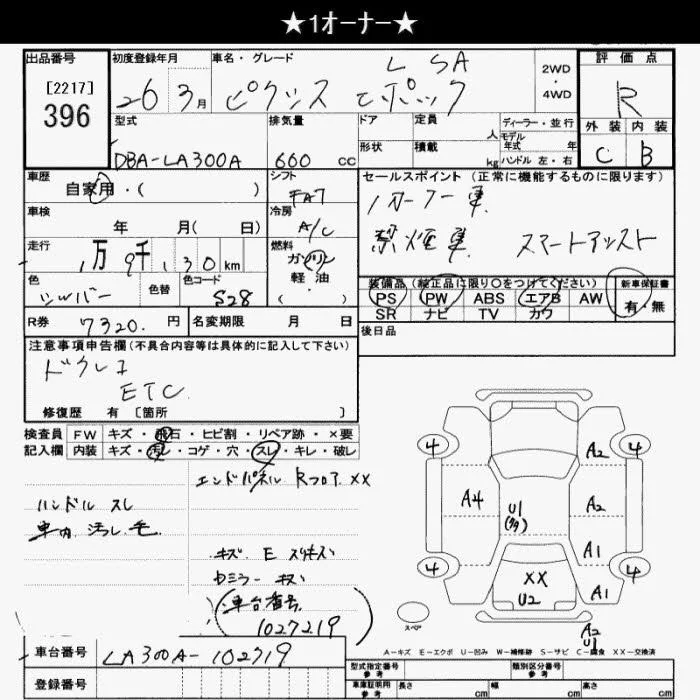 ★1オーナー★
出品番号 初度登録年月 車名・グレード 評価点
[2217]
396
26 3月 ピクシス エポック L SA 2WD・4WD R
型式 排気量 ドア 定員 人 ディーラー・並行 外装 内装
モデル年式 年
DBA-LA300A 660 cc 形状 積載 kg ハンドル 左・右 C B
車歴 シフト セールスポイント(正常に機能するものに限ります)
自家用・( ) FAT 1オーナー車
車検 冷房 禁煙車 スマートアシスト
年 月(日) A/C
走行 燃料
1万9千130km ガソリン
軽油
( )
色 色替 色コード
シルバー S28
装備品(純正品に限り○をつけてください) 新車保証書
PS PW ABS エアB AW 有・無
SR ナビ TV カワ
R券 7320.円 名変期限 月 日 後日品
注意事項申告欄(不具合内容等は具体的に記入して下さい)
ドラレコ
ETC
修復歴 有 [箇所 ]
検査員 FW キズ・飛石・ヒビ割・リペア跡・×要
記入欄 内装 キズ・汚れ・コゲ・穴・スレ・キレ・破レ
エンドパネル Rフロア XX
ハンドル スレ
車内 汚れ 毛
キズ E スリキズ
(車台番号
1027219)
4 4
A2
A4 U1 A2
A1
4 XX 4
U2 A1
スペア A2
U1
A-キズ E-エクボ U-凹み W-補修跡 S-サビ C-腐食 XX-交換済
車台番号 LA300A-102719
登録番号
型式指定番号 参考 類別区分番号 参考
車庫証明用 参考 長さ cm 幅 cm 高さ cm